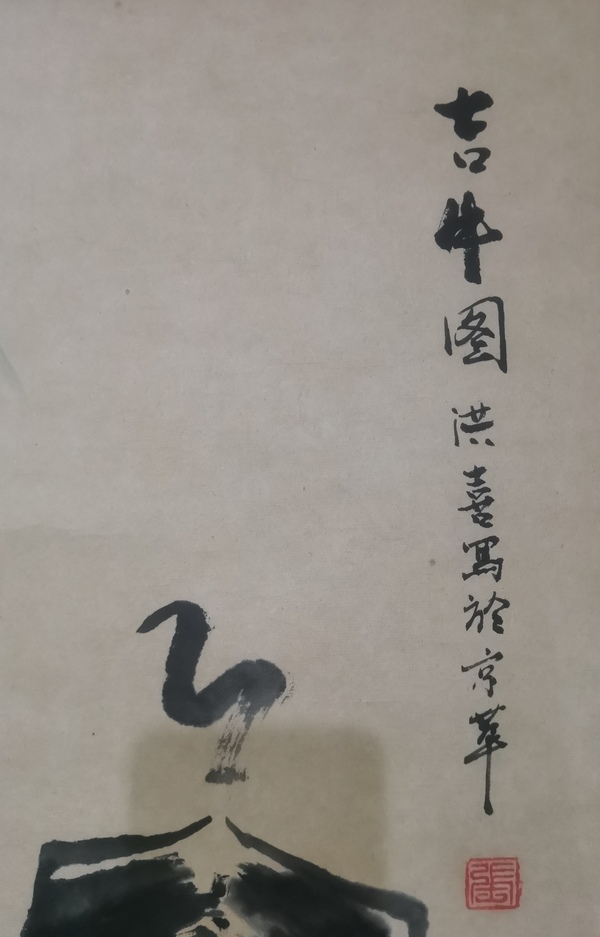 吉牛图 洪喜写於京华
張